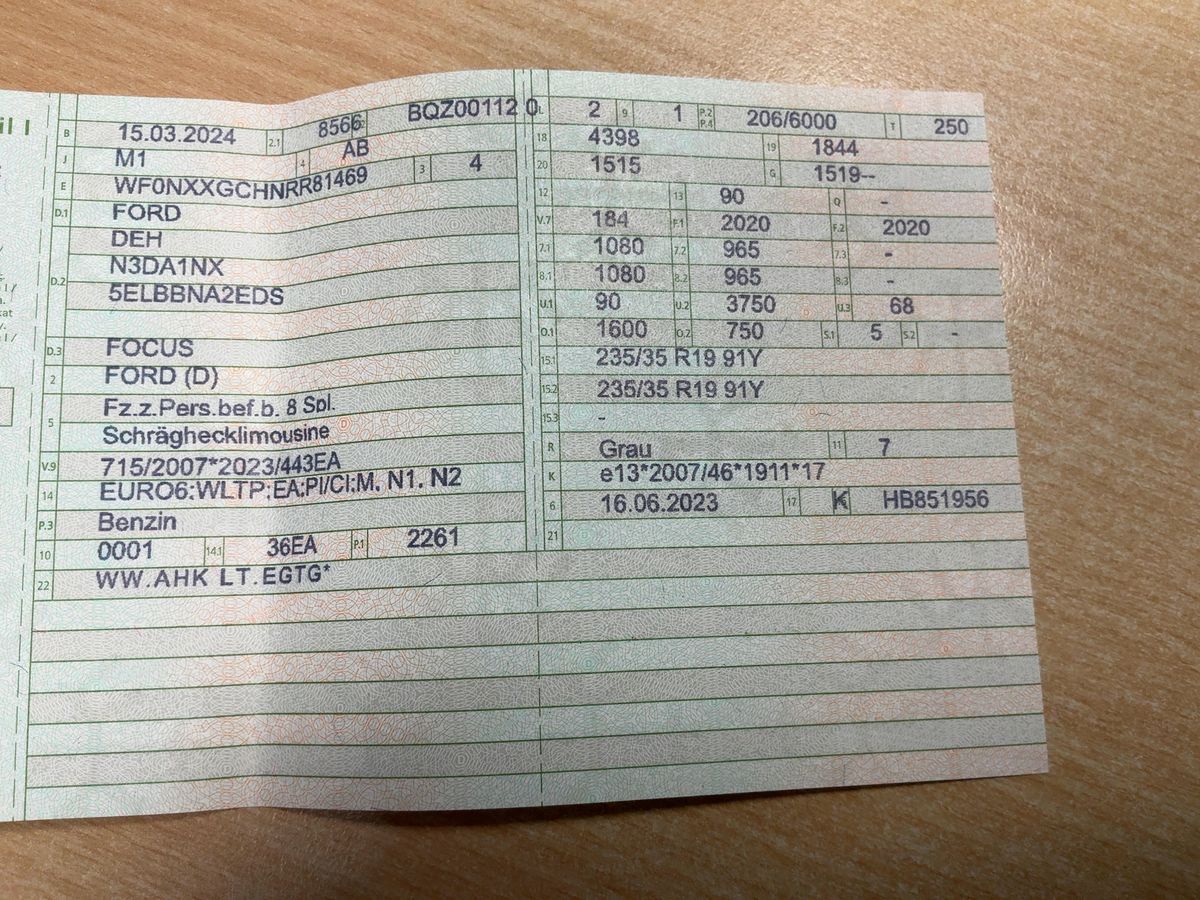 il I
B 15.03.2024 2.1 8566 BQZ00112 0
J M1 4 AB
E WF0NXXGCHNRR81469 3 4
D.1 FORD
DEH
D.2 N3DA1NX
5ELBBNA2EDS
D.3 FOCUS
2 FORD (D)
Fz.z.Pers.bef.b. 8 Spl.
5 Schräghecklimousine
V.9 715/2007*2023/443EA
14 EURO6;WLTP;EA;PI/CI;M, N1, N2
P.3 Benzin
10 0001 14.1 36EA P.1 2261
22 WW.AHK LT.EGTG*
L 2 9 1 P.2 P.4 206/6000 T 250
18 4398 19 1844
20 1515 G 1519--
12 13 90 Q -
V.7 184 F.1 2020 F.2 2020
7.1 1080 7.2 965 7.3 -
8.1 1080 8.2 965 8.3 -
U.1 90 U.2 3750 U.3 68
O.1 1600 O.2 750 S.1 5 S.2 -
15.1 235/35 R19 91Y
15.2 235/35 R19 91Y
15.3 -
R Grau 11 7
K e13*2007/46*1911*17
6 16.06.2023 17 K HB851956
21